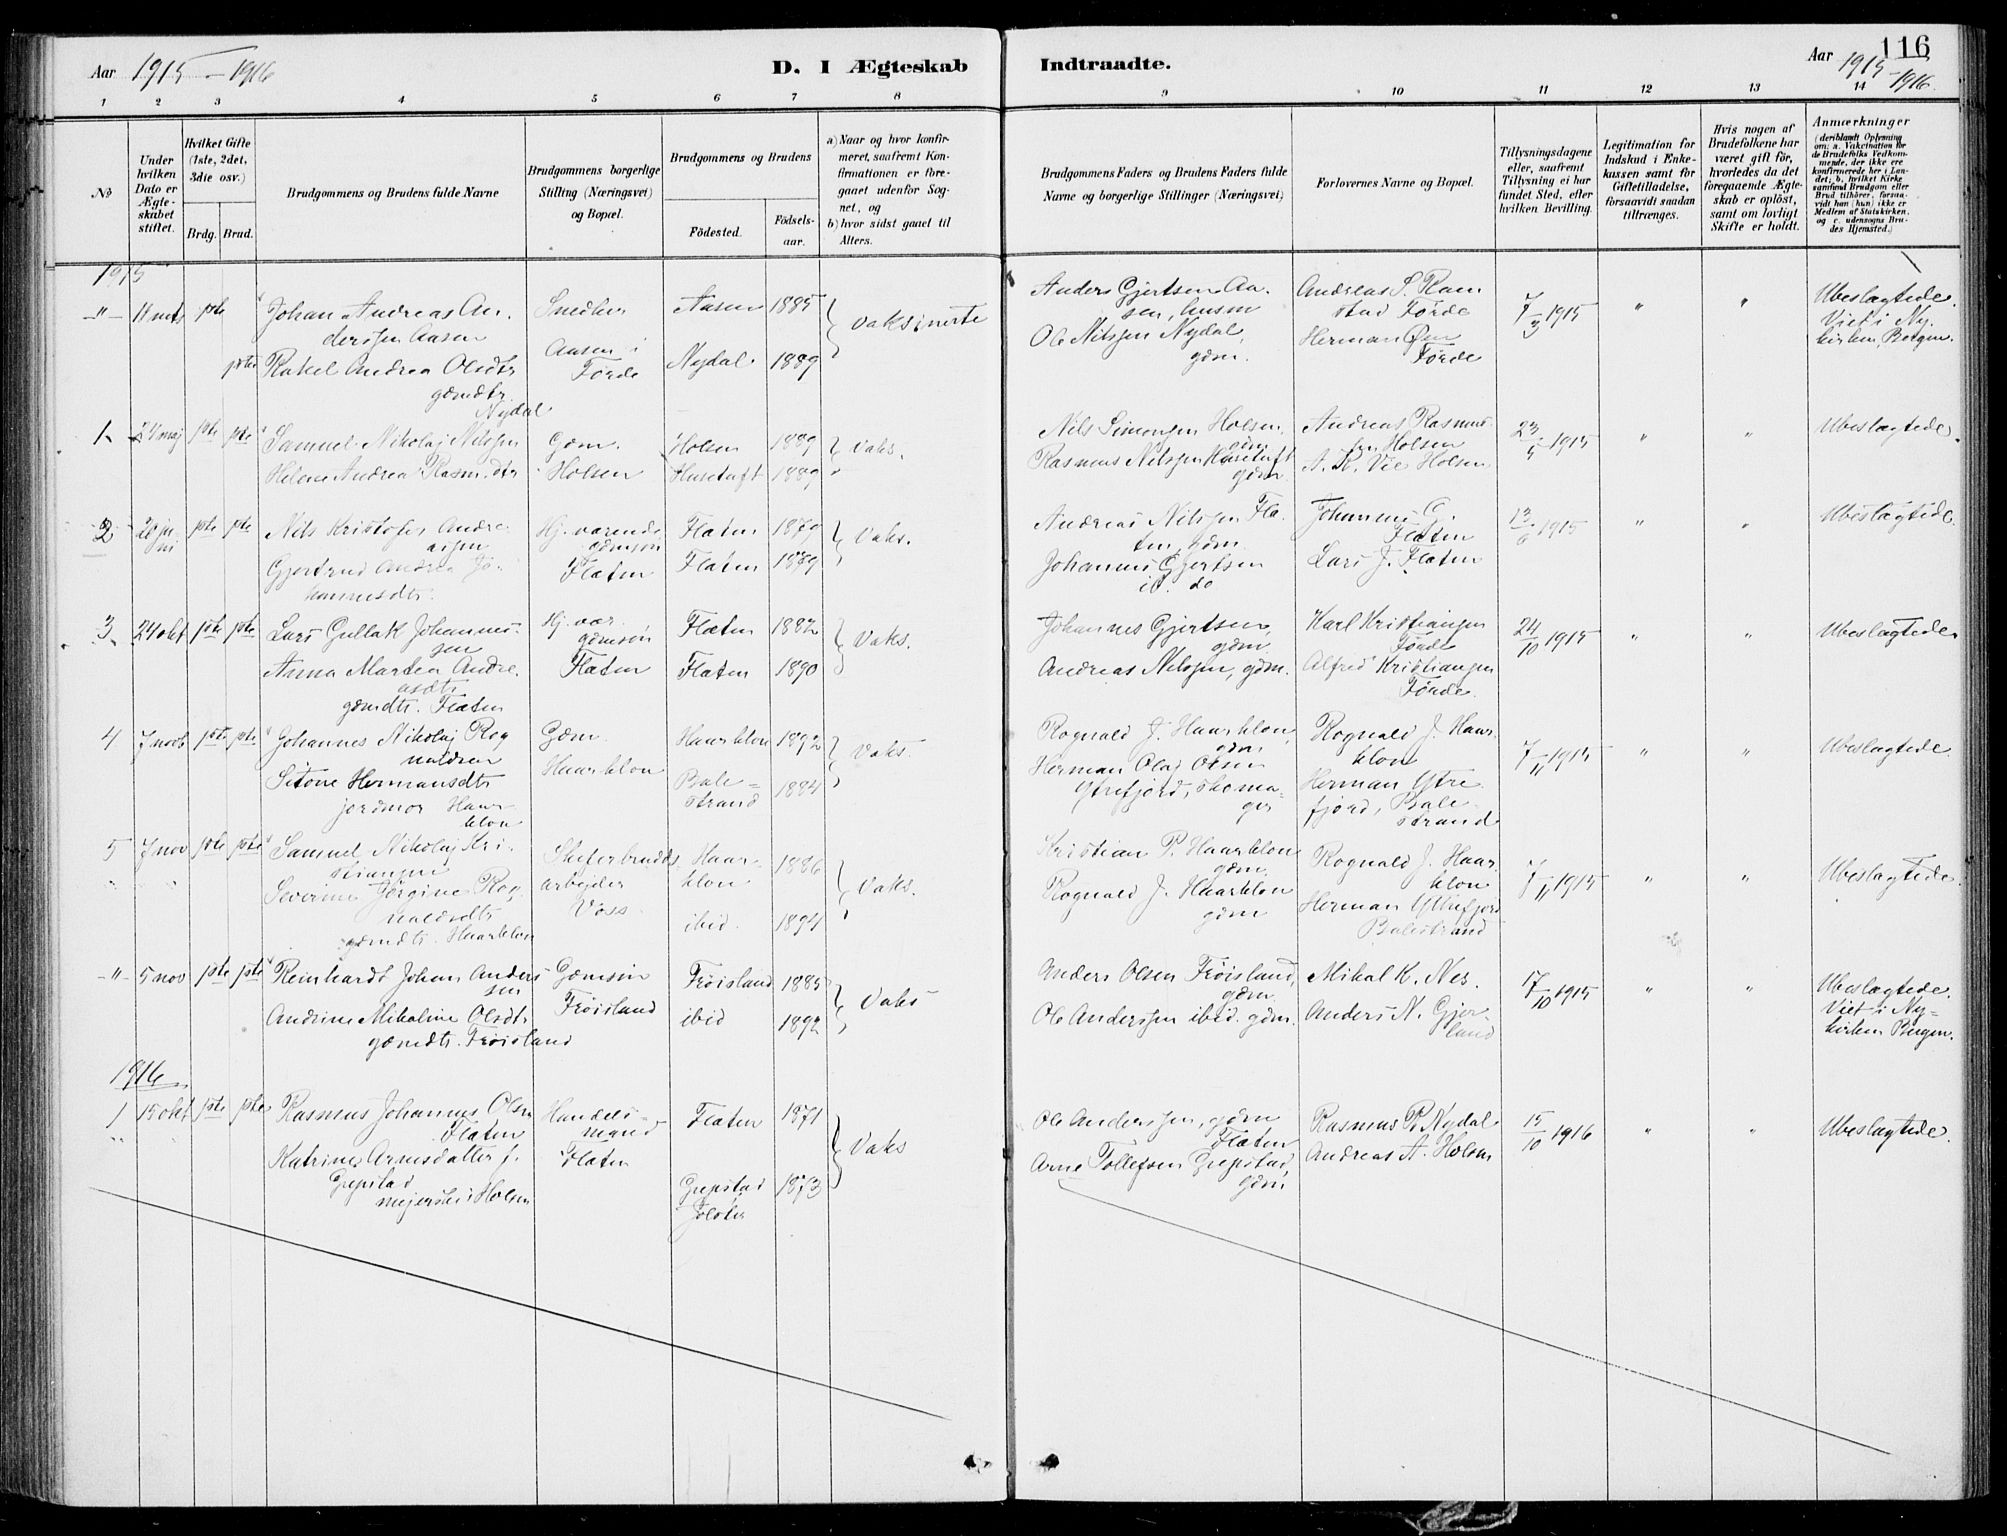 Aar 1915 – 1916
D. I Ægteskab Indtraadte.
Aar 1915 – 1916.
116
1 2 3 4 5 6 7 8 9 10 11 12 13 14
No
Under hvilken Dato er Ægteskabet stiftet.
Hvilket Gifte (1ste, 2det, 3die osv.)
Brdg. Brud.
Brudgommens og Brudens fulde Navne
Brudgommens borgerlige Stilling (Næringsvei) og Bopæl.
Brudgommens og Brudens
Födested. Födselsaar.
a) Naar og hvor konfirmeret, saafremt Konfirmationen er foregaaet udenfor Sognet, og
b) hvor sidst gaaet til Alters.
Brudgommens Faders og Brudens Faders fulde Navne og borgerlige Stillinger (Næringsvei)
Forlovernes Navne og Bopæl.
Tillysningsdagene eller, saafremt Tillysning ei har fundet Sted, efter hvilken Bevilling.
Legitimation for Indskud i Enkekassen samt for Giftetilladelse, forsaavidt saadan tiltrænges.
Hvis nogen af Brudefolkene har været gift för, hvorledes da det foregaaende Ægteskab er oplöst, samt om lovligt Skifte er holdt.
Anmærkninger
(deriblandt Oplysning om: a. Vakcination for de Brudefolks Vedkommende, der ikke ere konfirmerede her i Landet; b. hvilket Kirkesamfund Brudgom eller Brud tilhörer, forsaavidt han (hun) ikke er Medlem af Statskirken, og c. udensogns Brudes Hjemsted.)
1915
-"- 11 mts 1ste Johan Andreas Anderssen Aasen Snedker Aasen 1885 Vaksinerte
Aasen i Førde
1ste Rakel Andrea Olsdtr gdmdtr. Nydal Nydal 1889
Anders Gjertsen Aasen, husm
Ole Nilssen Nydal, gdm.
Andreas S. Ramstad Førde
Herman Øen Førde
7/3 1915 " "
Ubeslægtede. Viet i Nykirken, Bergen.
1. 24 maj 1ste 1ste Samuel Nikolaj Nilssen Gdm. Holsen 1889 Vaks.
Helene Andrea Rasm.dtr Holsen Husetuft 1889 "
Nils Simonsen Holsen gdm
Rasmus Nilssen Husetuft gdm
Andreas Rasmussen Holsen
A. R. Vie Holsen
23/5 1915 " " Ubeslægtede.
2 20 juni 1ste 1ste Nils Kristofer Andreassen Hj.værende gdmsøn Flaten 1879 Vaks.
Gjertrud Andrea Johannesdtr. Flaten Flaten 1889
Andreas Nilssen Flaten, gdm.
Johannes Gjertsen ib. do
Johannes G. Flaten
Lars J. Flaten
13/6 1915 " " Ubeslægtede.
3 24 okt 1ste 1ste Lars Gullak Johannessen Hj.vær. gdmsøn Flaten 1882 Vaks.
Anna Martea Andreasdtr gdmdtr. Flaten Flaten Flaten 1890
Johannes Gjertsen, gdm.
Andreas Nilssen, gdm.
Karl Kristiansen Førde
Alfred Kristiansen Førde.
24/10 1915 " " Ubeslægtede
4 7 novb 1ste 1ste Johannes Nikolaj Rognaldsen Gdm. Haarklou 1892 Vaks.
Sitone Hermansdtr jordmor Haarklou Haarklou Balestrand 1884
Rognald J. Haarklou, gdm
Herman Olaj Olsen Ytrefjord, skomager
Rognald J. Haarklou
Herman Ytrefjord, Balestrand
7/11 1915 " " Ubeslægtede
5 7 nov 1ste 1ste Samuel Nikolaj Kristiansen Skiferbruddsarbejder Voss Haarklou 1886 Vaks.
Severine Jørgine Rognaldsdtr gdmdtr. Haarklou ibid. 1894
Kristian P. Haarklou gdm.
Rognald J. Haarklou gdm
Rognald J. Haarklou
Herman Yttrefjord Balestrand
7/11 1915 " " Ubeslægtede.
-"- 5 nov 1ste 1ste Reinhardt Johan Anderssen Gdmsøn Frøisland 1885 Vaks
Andrine Mikoline Olsdtr gdmdtr. Frøisland Frøisland ibid 1892
Anders Olsen Frøisland, gdm.
Ole Anderssen ibid. gdm.
Mikal K. Nes.
Anders N. Gjerland
17/10 1915 " "
Ubeslægtede. Viet i Nykirken Bergen.
1916
1 15 okt 1ste 1ste Rasmus Johannes Olsen Flaten Handelsmand Flaten 1871 Vaks
Katrine Arnesdatter f. Grepstad mejerske i Holsen Flaten Grepstad Jølster 1873
Ole Anderssen, gdm Flaten
Arne Tollefsen Grepstad, gdm
Rasmus R. Nydal
Andreas A. Holsen
15/10 1916 " " Ubeslægtede.